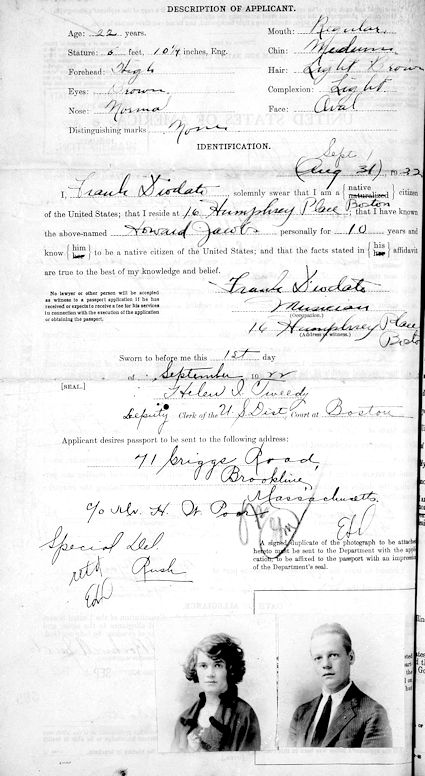 DESCRIPTION OF APPLICANT.
Age: 22 years.
Mouth: Regular
Stature: 6 feet, 10¼ inches, Eng.
Chin: Medium
Forehead: High
Hair: Light Brown
Eyes: Brown
Complexion: Light
Nose: Normal
Face: Oval
Distinguishing marks None
IDENTIFICATION.
Sept
(Aug 31), 1922
I, Frank Diodato, solemnly swear that I am a {native naturalized} citizen
of the United States; that I reside at 16 Humphrey Place Boston; that I have known
the above-named Howard Jacobs personally for 10 years and
know {him her} to be a native citizen of the United States; and that the facts stated in {his her} affidavit
are true to the best of my knowledge and belief.
No lawyer or other person will be accepted
as witness to a passport application if he has
received or expects to receive a fee for his services
in connection with the execution of the application
or obtaining the passport.
Frank Diodato
Musician
(Occupation.)
16 Humphrey Place
(Address of witness.)
Boston
Sworn to before me this 1st day
of September 1922
[SEAL.]
Helen I. Tweedy
Deputy Clerk of the U S Dist Court at Boston
Applicant desires passport to be sent to the following address:
71 Griggs Road,
Brookline,
Massachusetts
c/o Mr. H. W.
Special Del.
Rush
A signed duplicate of the photograph to be attached
hereto must be sent to the Department with the appli-
cation, to be affixed to the passport with an impression
of the Department's seal.